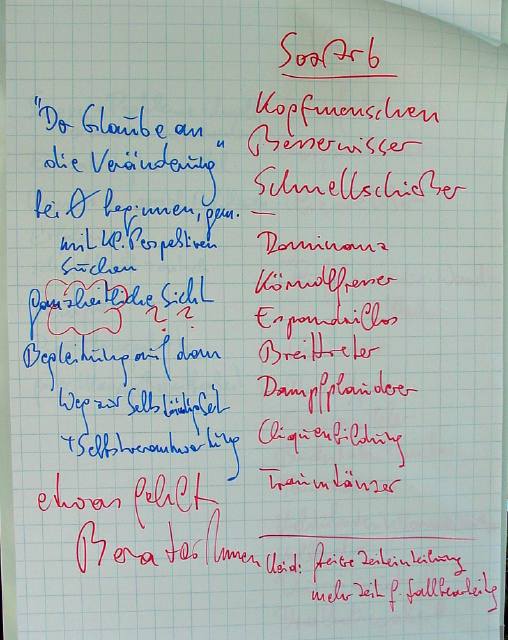 SozArb
"Der Glaube an
die Veränderung"
bei 0 beginnen, gem.
mit Kl. Perspektiven
suchen
ganzheitliche Sicht
? ?
Begleitung auf dem
Weg zur Selbständigkeit
+ Selbstverantwortung
etwas fehlt
BeraterInnen
Kopfmenschen
Besserwisser
Schnellschießer
—
Dominanz
Körndlfresser
Espandrillos
Breittreter
Dampfplauderer
Cliquenbildung
Traumtänzer
Neid: freiere Zeiteinteilung
mehr Zeit f. Fallbearbeitg